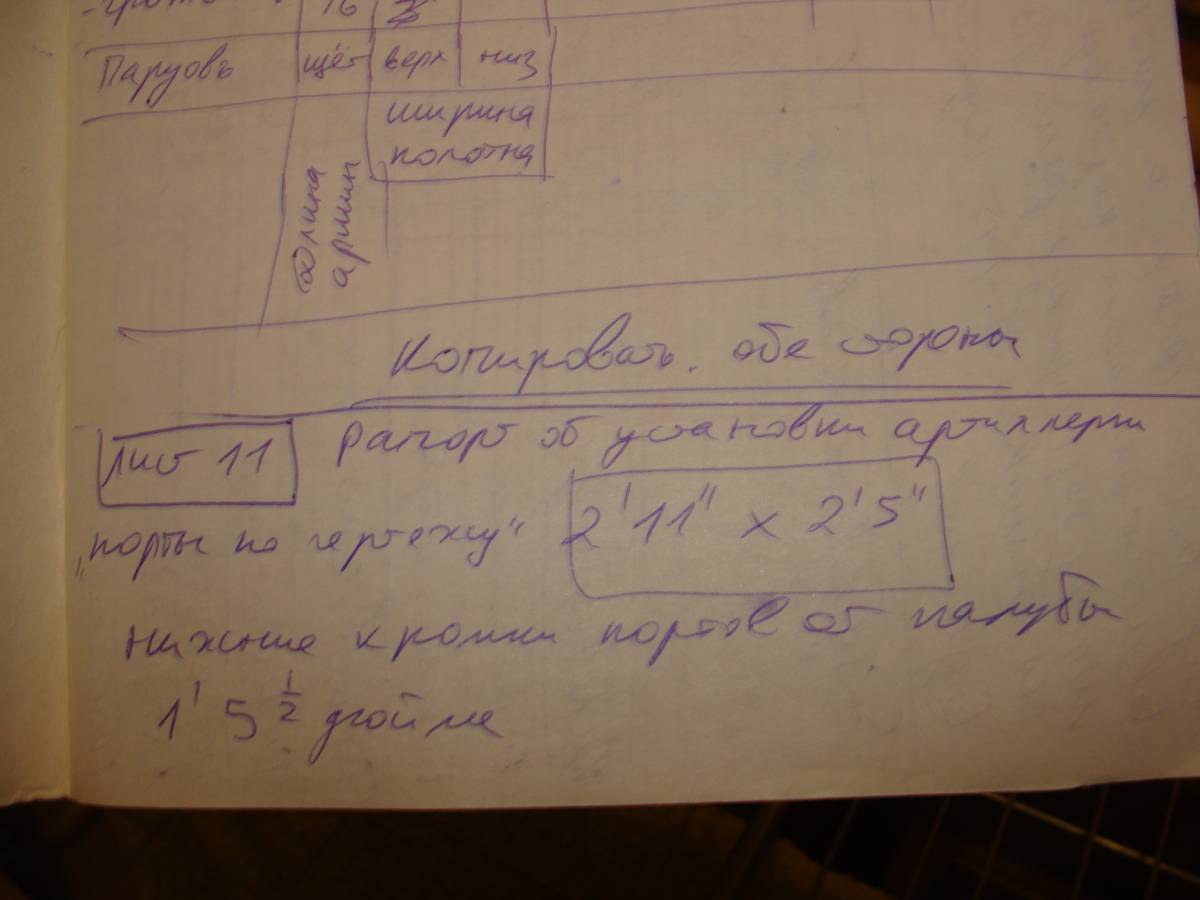 16
Парусовъ щёт верх низ
ширина
полотна
длина
аршин
Копировать обе стороны
Лист 11 Рапорт об установки артиллерии
„порты по чертежу“ 2' 11" х 2' 5"
нижние кромки портов от палубы
1' 5 1/2 дюйма